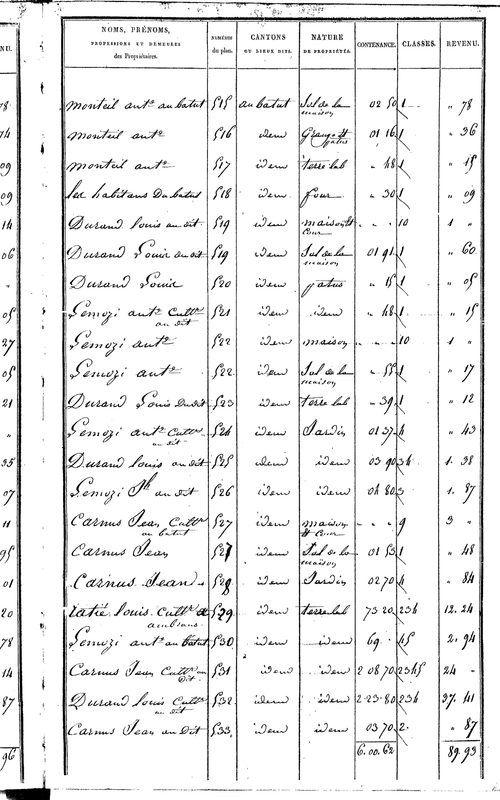 NU.
NOMS, PRÉNOMS,
PROFESSIONS ET DEMEURES
des Propriétaires.
NUMÉROS
du plan.
CANTONS
OU LIEUX DITS.
NATURE
DE PROPRIÉTÉS.
CONTENANCE.
CLASSES.
REVENU.
78 monteil ant.e au batut 515 au batut Sol de la maison 02 50 1 " 78
74 monteil ant.e 516 idem Grange et patus 01 16 1 " 36
09 monteil ant.e 517 idem terre lab " 48 1 " 15
09 les habitans du batut 518 idem four " 30 1 " 09
14 Durand Louis au dit 519 idem maison et Cour " " " 10 1 "
06 Durand Louis au dit 519 idem Sol de la maison 01 91 1 " 60
" Durand Louis 520 idem patus " 15 1 " 05
05 Lemozi ant.e Cult.r au dit 521 idem idem " 48 1 " 15
27 Lemozi ant.e 522 idem maison " " " 10 1 "
05 Lemozi ant.e 522 idem Sol de la maison " 55 1 " 17
21 Durand Louis Du dit 523 idem terre lab " 39 1 " 12
" Lemozi ant.e Cult.r au dit 524 idem Jardin 01 37 4 " 43
35 Durand Louis au dit 525 idem idem 03 90 34 1. 38
07 Lemozi J.h au dit 526 idem idem 04 80 3 1. 87
11 Carnus Jean Cult.r au batut 527 idem maison et Cour " " " 9 3 "
95 Carnus Jean 527 idem Sol de la maison 01 53 1 " 48
01 Carnus Jean 528 idem Jardin 02 70 4 " 84
20 ratié Louis Cult.r 529 idem terre lab 73 20 234 12. 24
78 Lemozi ant.e au batut 530 idem idem 69 . 45 2. 94
14 Carnus Jean Cult.r au dit 531 idem idem 2 08 70 2345 24 -
87 Durand Louis Cult.r au dit 532 idem idem 2 23 80 234 37. 41
Carnus Jean au dit 533 idem idem 03 70 2. " 87
96 6. 00. 62 89. 93